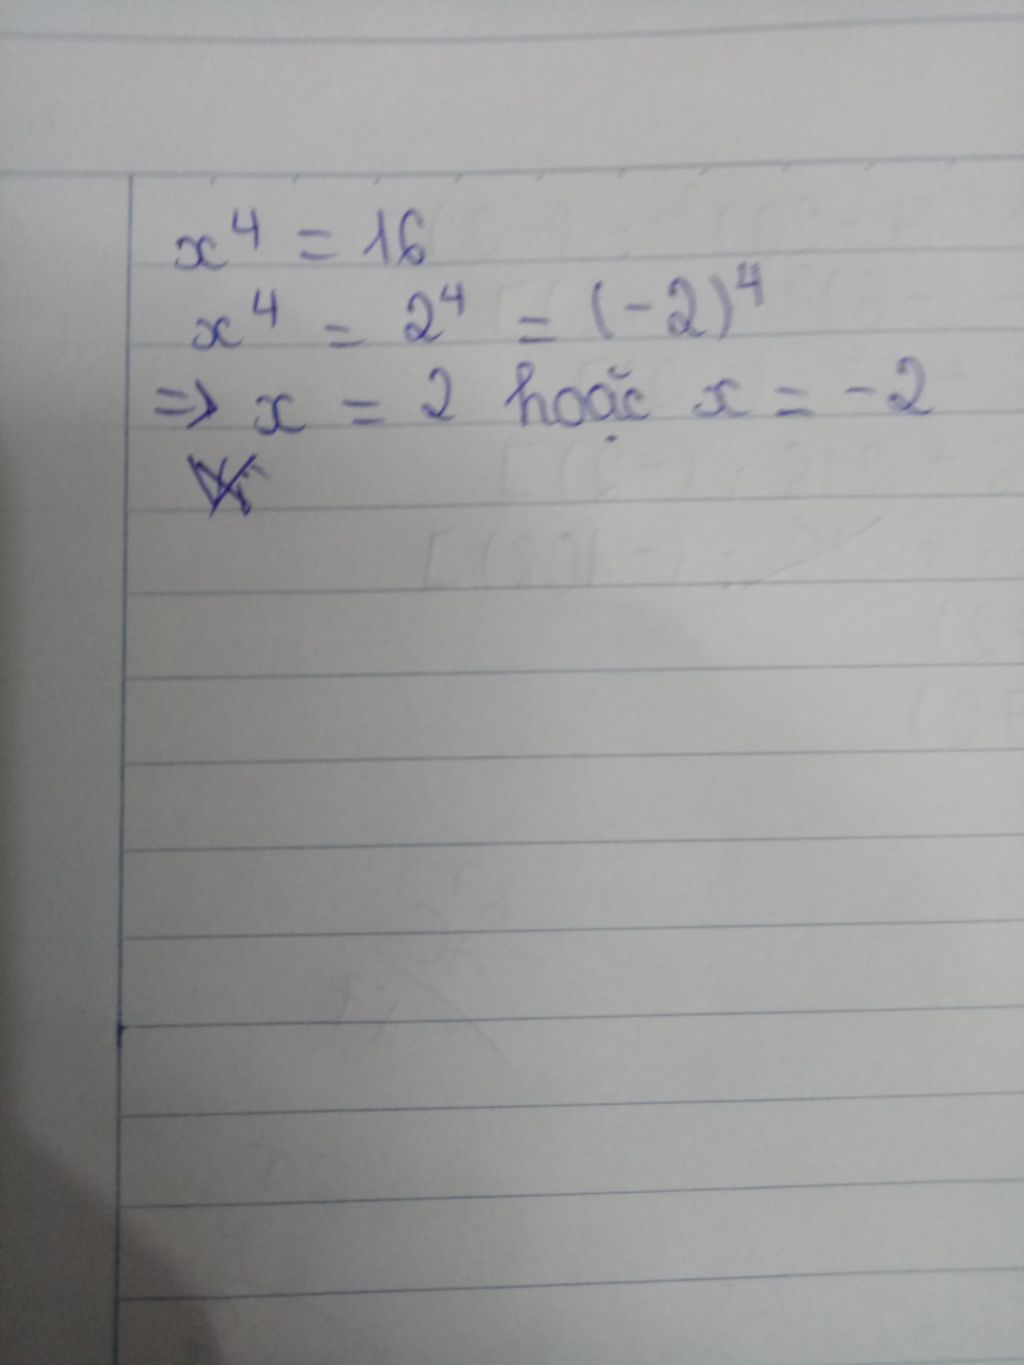 x⁴ = 16
x⁴ = 2⁴ = (-2)⁴
=> x = 2 hoặc x = -2